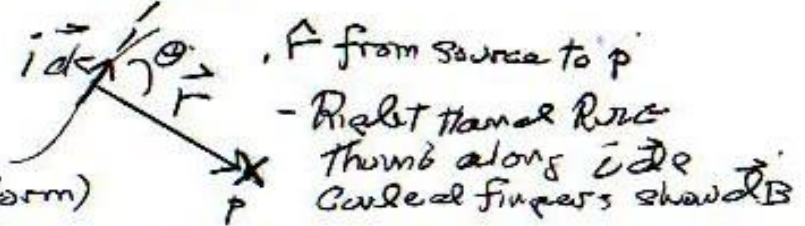 i d𝓁⃗ θ r⃗
, r̂ from source to p
- Right Hand Rule
Thumb along i d𝓁⃗
Curled fingers show dB⃗
orm)
p